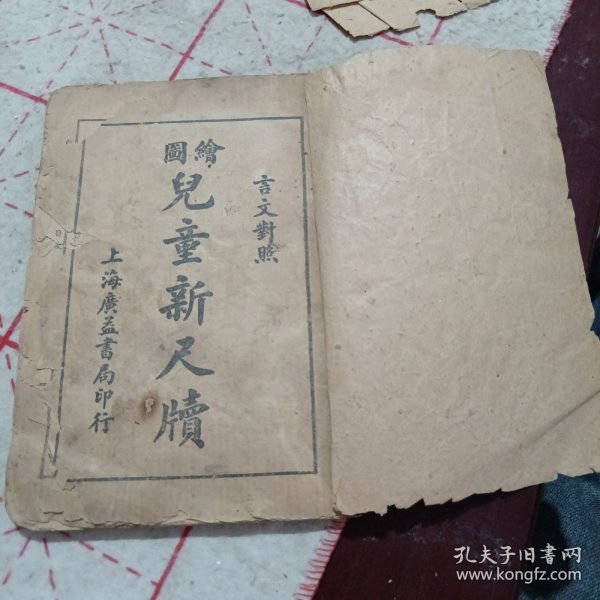 言文對照
繪圖
兒童新尺牘
上海廣益書局印行
孔夫子旧书网
www.kongfz.com